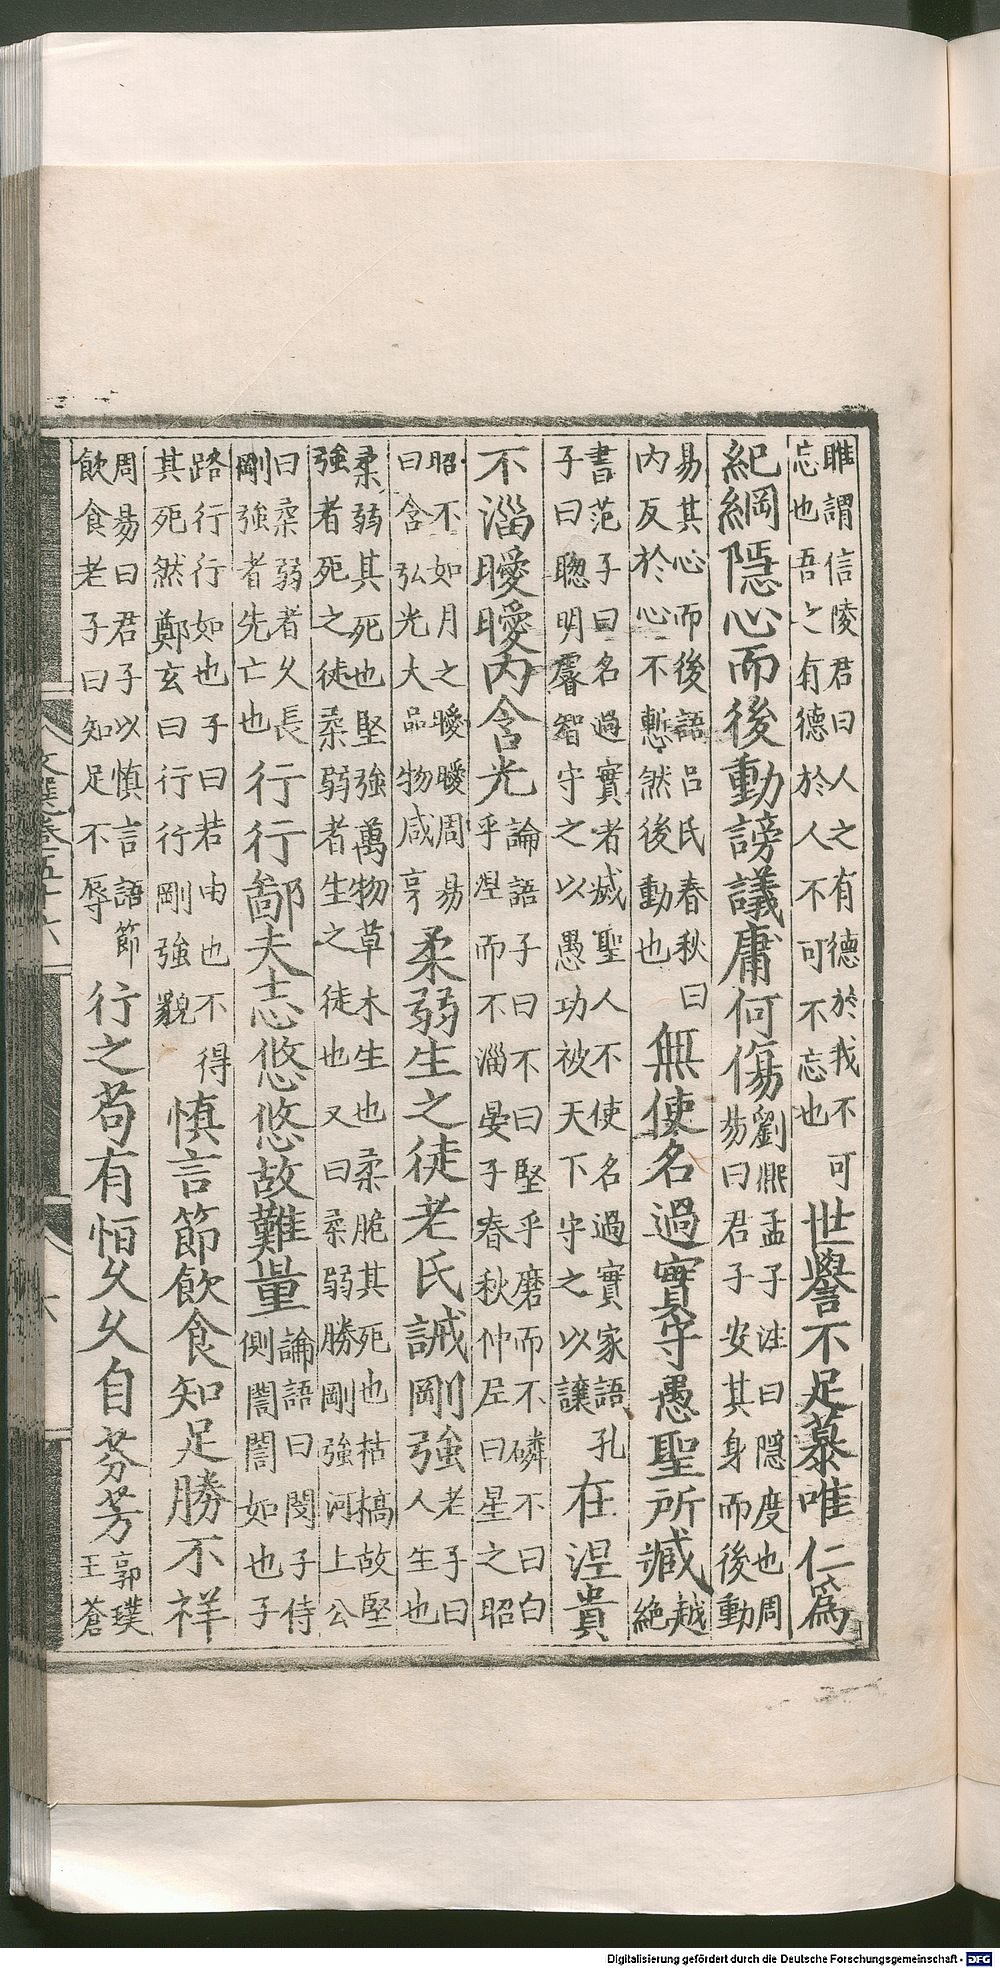 睢謂信陵君曰人之有德於我不可
忘也吾之有德於人不可不忘也
世譽不足慕唯仁爲
紀綱隱心而後動謗議庸何傷
劉熙孟子注曰隱度也周
易曰君子安其身而後動
易其心而後語呂氏春秋曰
内反於心不慙然後動也
無使名過實守愚聖所臧
越
絶
書范子曰名過實者滅聖人不使名過實家語孔
子曰聰明睿智守之以愚功被天下守之以讓
在涅貴
不淄曖曖内含光
論語子曰不曰堅乎磨而不磷不曰白
乎涅而不淄晏子春秋仲尼曰星之昭
昭不如月之曖曖周易
曰含弘光大品物咸亨
柔弱生之徒老氏誡剛強
老子曰
人生也
柔弱其死也堅強萬物草木生也柔脆其死也枯槁故堅
強者死之徒柔弱者生之徒也又曰柔弱勝剛強河上公
曰柔弱者久長
剛強者先亡也
行行鄙夫志悠悠故難量
論語曰閔子侍
側誾誾如也子
路行行如也子曰若由也不得
其死然鄭玄曰行行剛強貌
慎言節飲食知足勝不祥
周易曰君子以慎言語節
飲食老子曰知足不辱
行之苟有恒久久自芬芳
郭璞
王蒼
文選卷五十六
六
Digitalisierung gefördert durch die Deutsche Forschungsgemeinschaft - DFG